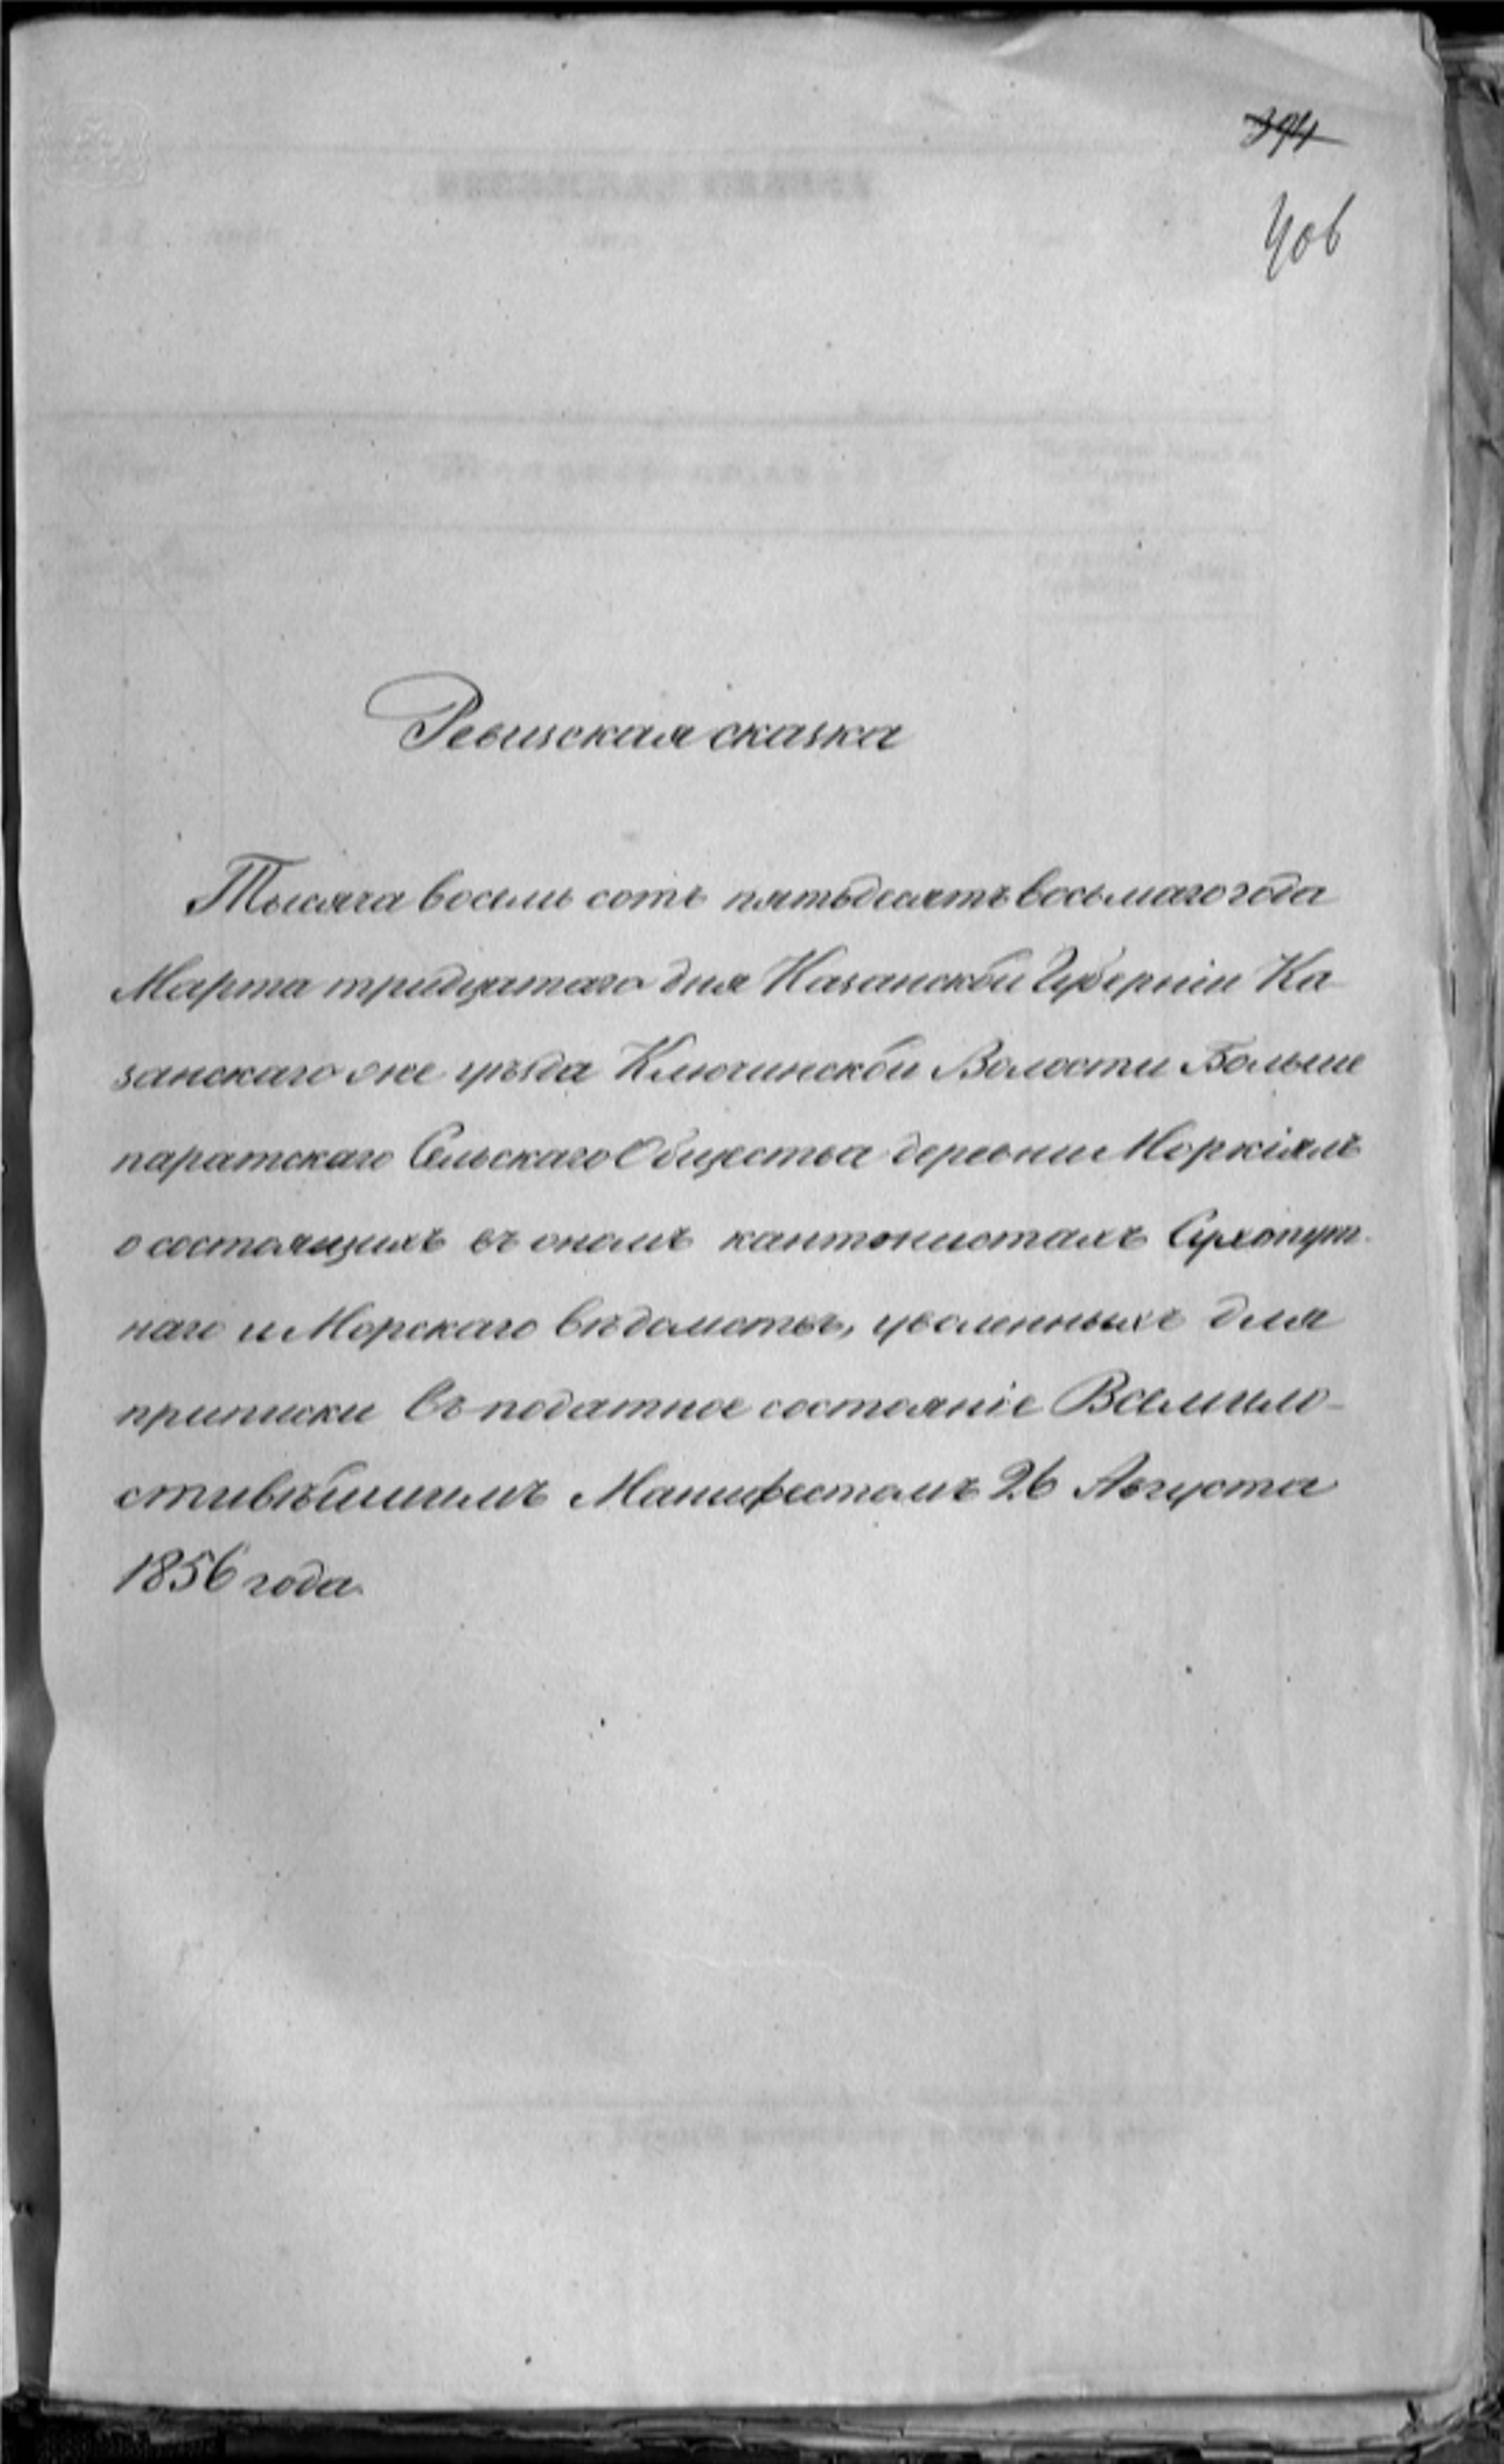 394
406
Ревизская сказка
Тысяча восемь сотъ пятьдесятъ восьмаго года
Марта тридцатаго дня Казанской Губерніи Ка-
занскаго же уѣзда Ключинской Волости Больше
паратскаго Сельскаго Общества деревни Моркіялъ
о состоящихъ въ ономъ кантонистахъ Сухопут-
наго и Морскаго вѣдомствъ, уволенныхъ для
приписки въ податное состояніе Всемило-
стивѣйшимъ Манифестомъ 26 Августа
1856 года.